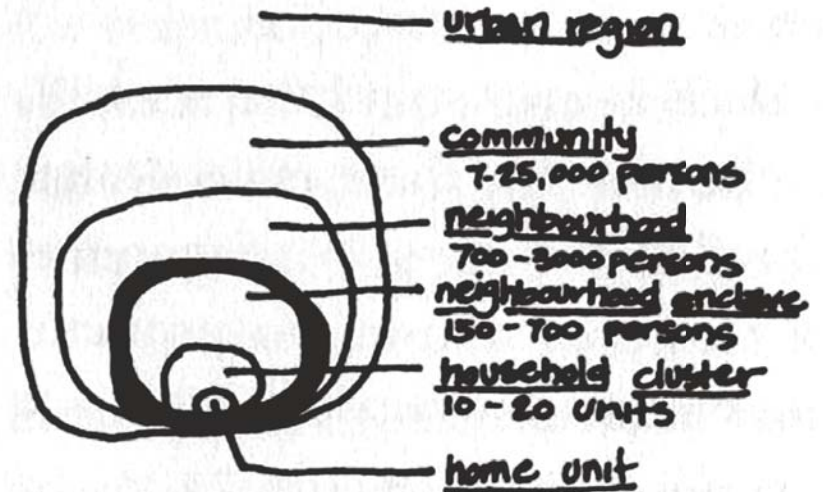 urban region
community
7-25,000 persons
neighbourhood
700-3000 persons
neighbourhood enclave
150-700 persons
household cluster
10-20 units
home unit